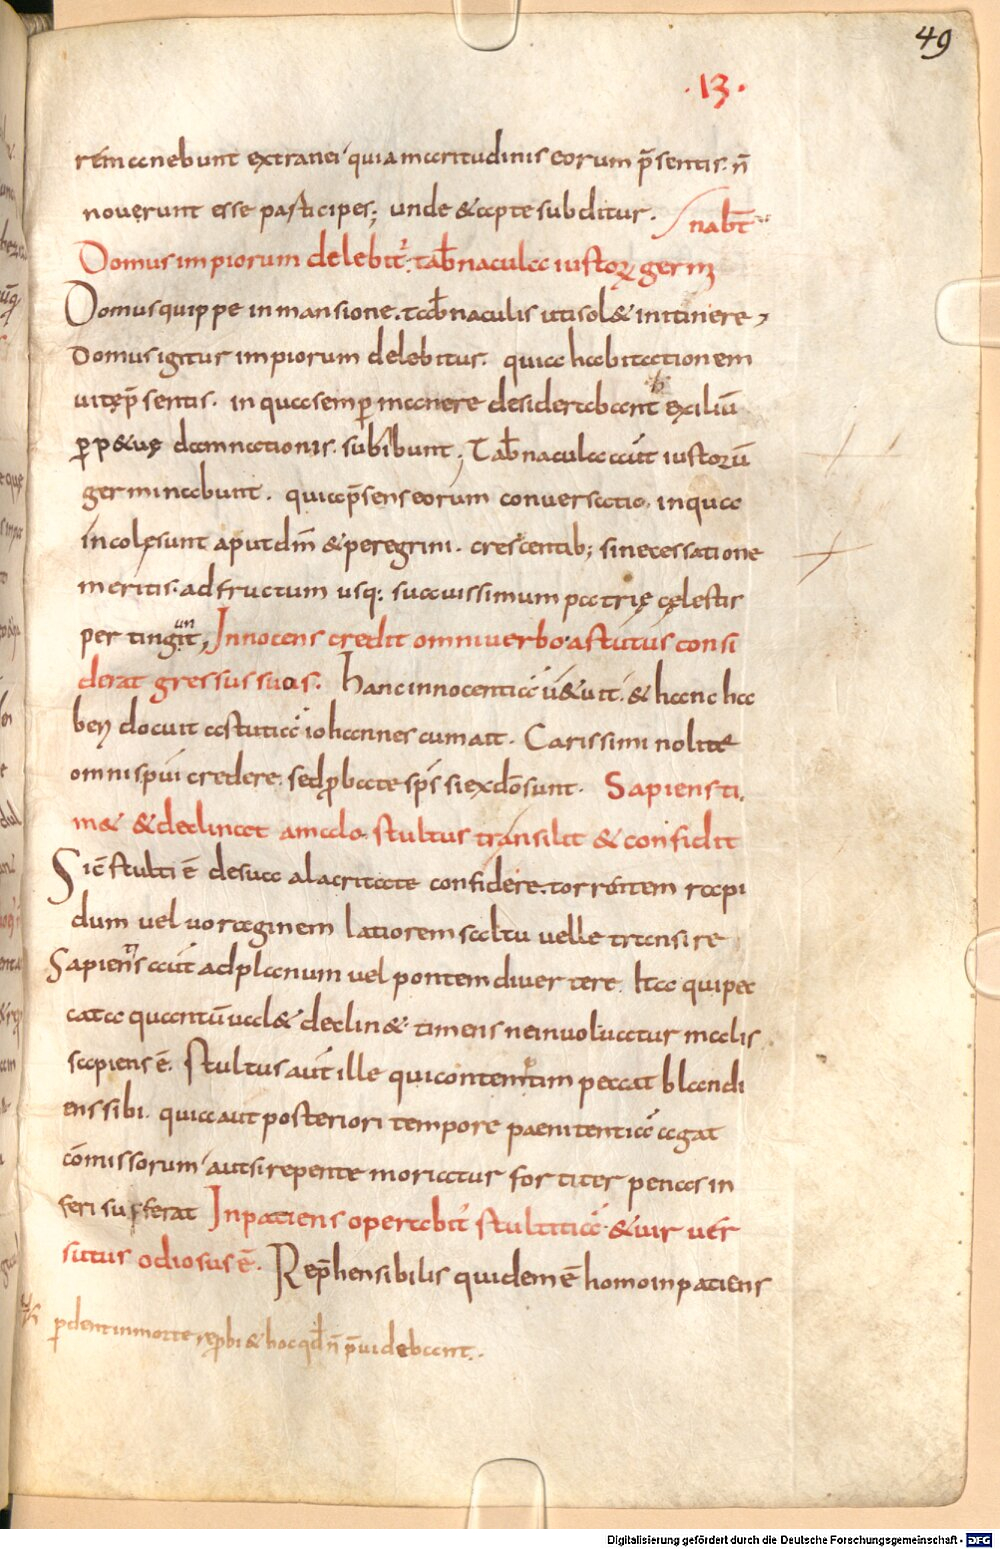 49
·13·
remanebunt extranei quia amaritudinis eorum p̄sentis. n̄
noverunt esse participes; unde & apte subditur.
nab̄t
Domus impiorum delebit᷑. tab̄nacula iustoꝝ germı
Domus quippe in mansione. tab̄naculis uti sol& in itinere,
domus igitur impiorum delebitur. quia habitationem
uitę p̄sentis. in qua semꝑ manere desiderabant exiliū
ꝑp&uę damnationis. subibunt; Tab̄nacula aūt iustorū
germinabunt. quia p̄sens eorum conversatio. in qua
incolę sunt aput dm̄ & peregrini. crescentib; sine cessatione
meritis. ad fructum usq: suavissimum patrię cęlestis
per tingit, Innocens credit omni verbo. astutus consi
un
derat gressus suos. Hanc innocentiā u&uit. & hanc ha
ben docuit astutiā iohannes cum ait. Carissimi nolite
omni sp̄ui credere. sed ꝓbate sp̄s si ex dō sunt. Sapiens ti
m& & declinat a malo. stultus transilit & confidit
Sic̄ stulti ē de sua alacritate confidere. torrentem rapi
dum vel voraginem latiorem saltu velle transire
Sapientis aūt ad planum vel pontem divertere. Ita qui pec
cata quantū ual& declin& timens ne inuoluatur malis
sapiens ē. Stultus aūt ille qui contemtim peccat blandi
ens sibi. quia aut posteriori tempore paenitentiā agat
cōmissorum aut si repente moriatur fortiter penas in
feri sufferat Inpatiens operabit᷑ stultitiā. & uir uer
sutus odiosus ē. Rep̄hensibilis quidem ē homo inpatiens
ꝑdent in morte reꝓbi & hoc qd̄ n̄ p̄uidebant.
Digitalisierung gefördert durch die Deutsche Forschungsgemeinschaft - DFG